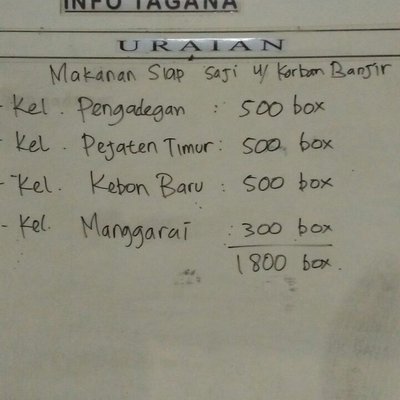 INFO TAGANA
URAIAN
Makanan Siap saji u/ Korban Banjir
- Kel. Pengadegan : 500 box
- Kel. Pejaten Timur : 500 box
- Kel. Kebon Baru : 500 box
- Kel. Manggarai : 300 box
1800 box.